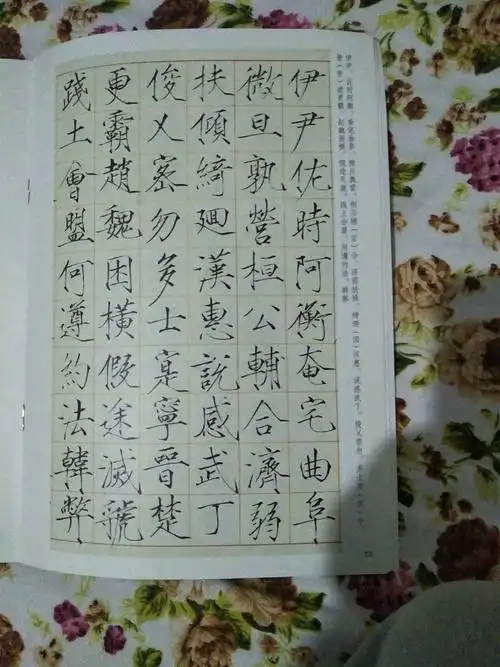 伊尹佐時阿衡奄宅曲阜
微旦孰營桓公輔合濟弱
扶傾綺迴漢惠説感武丁
俊乂密勿多士寔寧晉楚
更霸趙魏困橫假途滅虢
踐土會盟何遵約法韓弊